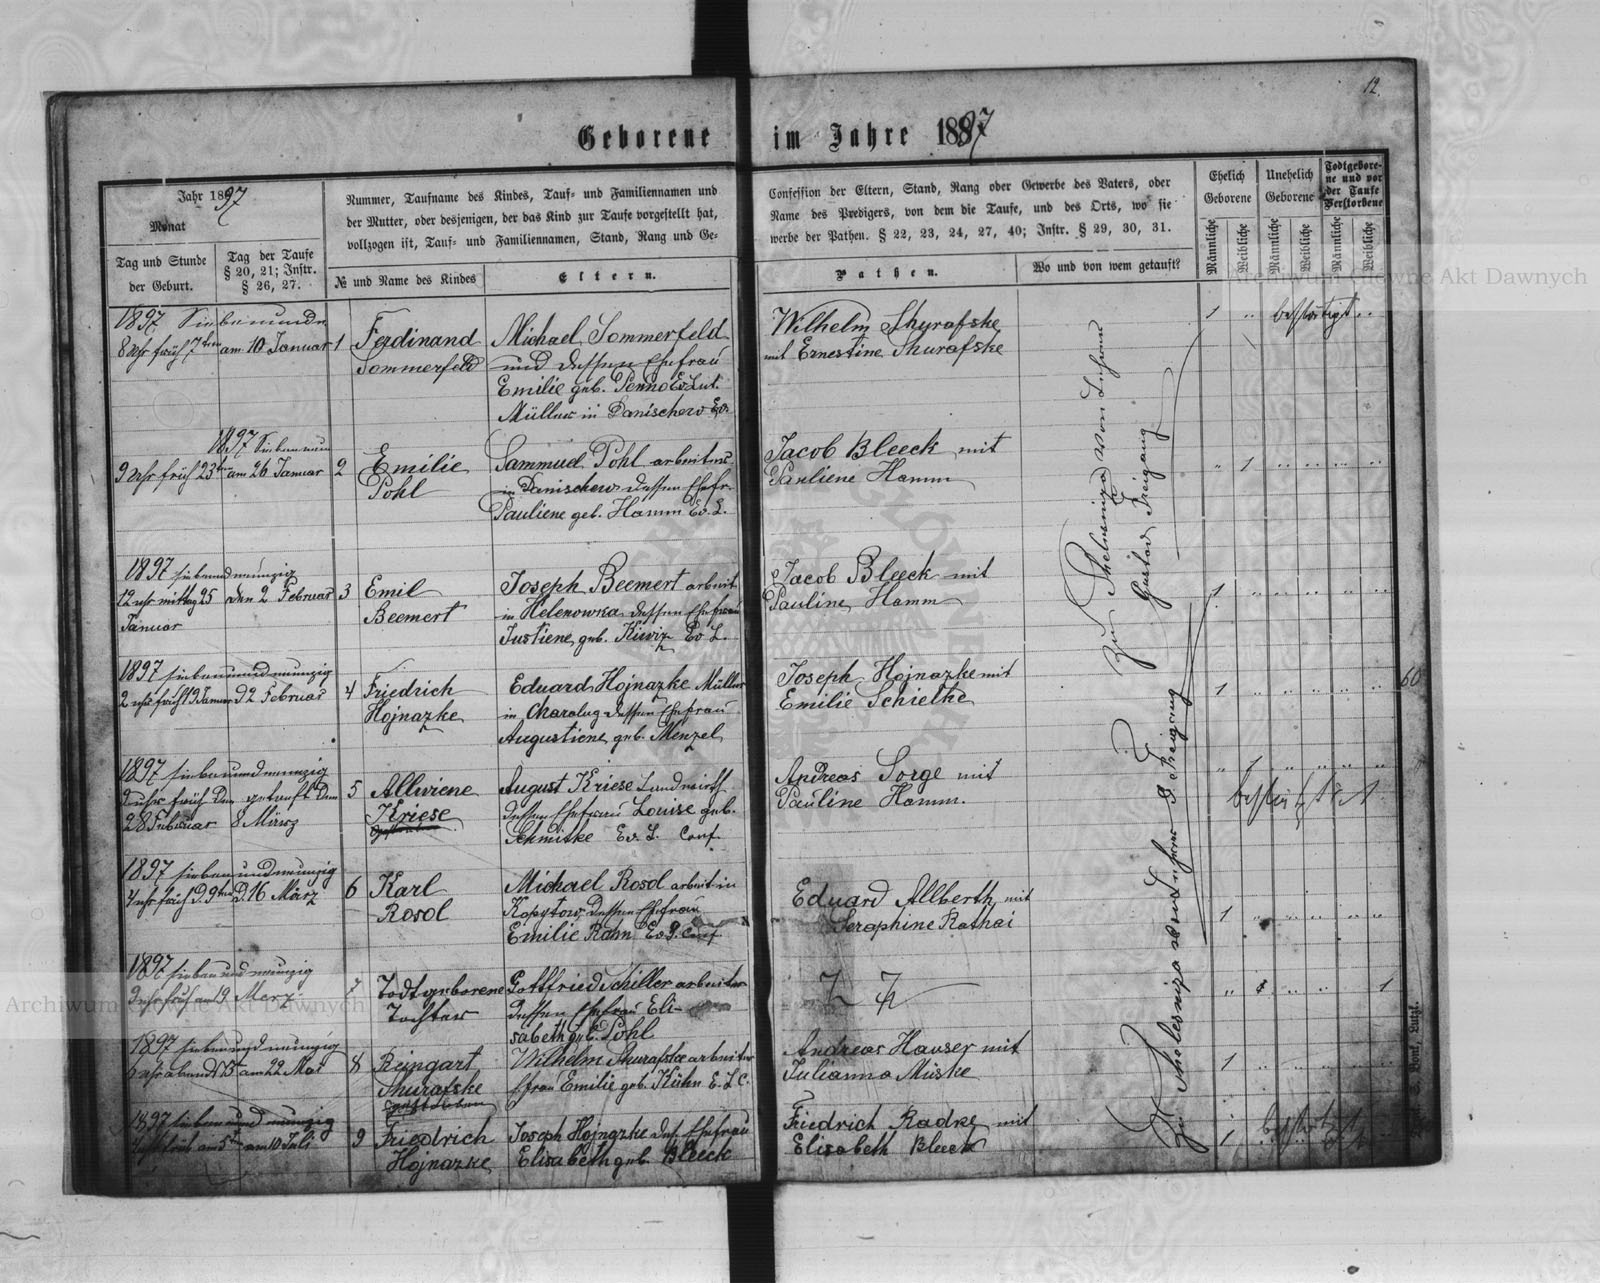 12.
Geborene im Jahre 1897
Jahr 1897
Monat
Tag und Stunde
der Geburt.
Tag der Taufe
§ 20, 21; Instr.
§ 26, 27.
Nummer, Taufname des Kindes, Tauf- und Familiennamen und
der Mutter, oder desjenigen, der das Kind zur Taufe vorgestellt hat,
vollzogen ist, Tauf- und Familiennamen, Stand, Rang und Ge-
№ und Name des Kindes
Eltern.
Confession der Eltern, Stand, Rang oder Gewerbe des Vaters, oder
Name des Predigers, von dem die Taufe, und des Orts, wo sie
werbe der Pathen. § 22, 23, 24, 27, 40; Instr. § 29, 30, 31.
Pathen.
Wo und von wem getauft?
Ehelich
Geborene
Unehelich
Geborene
Todtgebore-
ne und vor
der Taufe
Verstorbene
Männliche
Weibliche
Männliche
Weibliche
Männliche
Weibliche
1897
8 Uhr früh 7ten am 10 Januar 1
Ferdinand
Sommerfeld
Michael Sommerfeld
und dessen Ehefrau
Emilie geb. Penno Ev. Lut.
Müller in Danischew Ev.
Wilhelm
mit Ernestine
1
1897
9 Uhr früh 23ten am 26 Januar 2
Emilie
Pohl
Sammuel Pohl arbeiter
in Danischew dessen Ehefr.
Pauliene geb. Hamm Ev. L.
Jacob Bleeck mit
Pauliene Hamm
1
1897 siebenundneunzig
12 uhr mittag 25 den 2 Februar 3
Januar
Emil
Beemert
Joseph Beemert arbeit
in Helenowka dessen Ehefrau
Justiene geb. Ev. L.
Jacob Bleeck mit
Pauline Hamm
1
1897 siebenundneunzig
2 uhr früh 19 Januar d 2 Februar 4
Friedrich
Hojnazke
Eduard Hojnazke Müller
in dessen Ehefrau
Augustiene geb. Menzel
Joseph Hojnazke mit
Emilie Schielke
1
60
1897 siebenundneunzig
uhr früh den getauft den
28 Februar 8 März
5
Allwiene
Kriese
August Kriese Landwirth
dessen Ehefrau Louise geb.
Schmitke Ev. L. Conf
Andreas Sorge mit
Pauline Hamm.
1
1897 siebenundneunzig
4 uhr früh d. 9ten D. 16 März 6
Karl
Rosol
Michael Rosol arbeit in
Kopytow dessen Ehefrau
Emilie Rahn Ev. L. Conf
Eduard Allberth mit
Seraphine Rathai
1
1897 siebenundneunzig
9 uhr früh am 19 Merz 7
Todtgeborene
Tochter
Gottfried Schiller arbeiter
dessen Ehefrau Eli-
sabeth geb. Pohl
1
1897 siebenundneunzig
uhr abends 15 am 22 Mai 8
Reingart
Wilhelm arbeiter
Emilie geb. Kühn E. L. C.
Andreas Hauser mit
Julianna Müske
1
1897 siebenundneunzig
am 5ten am 10 Juli 9
Friedrich
Hojnazke
Joseph Hojnazke des Ehefrau
Elisabeth geb. Bleeck
Friedrich Radke mit
Elisabeth Bleeck
1
Gustav Freigang
Archiwum Główne Akt Dawnych
Archiwum Główne Akt Dawnych